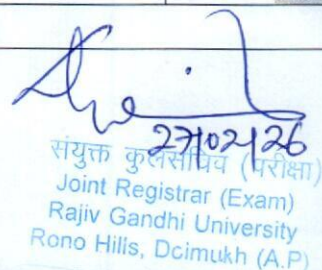 27/02/26
संयुक्त कुलसचिव (परीक्षा)
Joint Registrar (Exam)
Rajiv Gandhi University
Rono Hills, Doimukh (A.P)